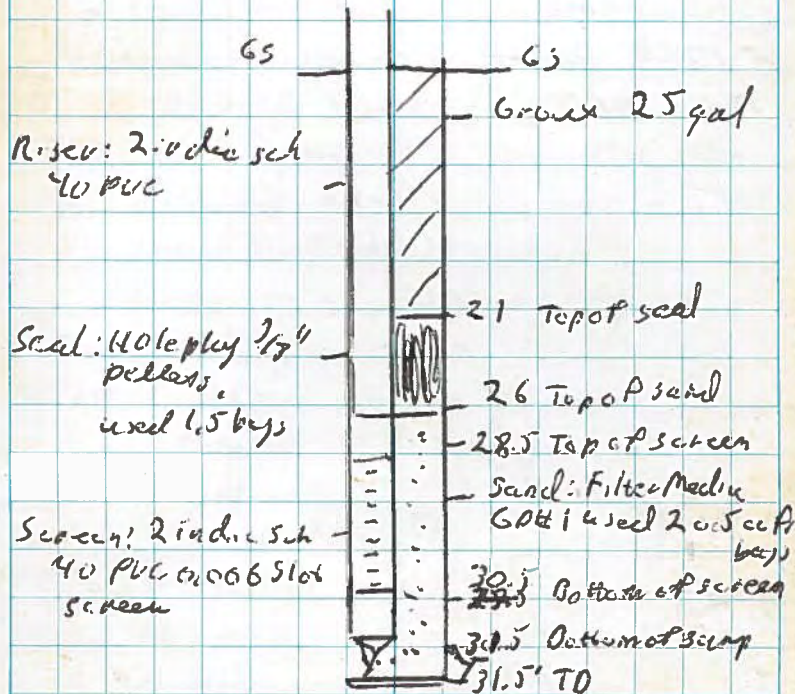 GS GS
Grout 25 gal
Riser: 2 in dia sch
40 PVC
21 Top of seal
Seal: Hole plug 3/8"
pellets,
used 1.5 bags
26 Top of sand
28.5 Top of screen
Sand: Filter Media
used 2 0.5 cu ft
bags
Screen: 2 in dia sch
40 PVC 0.006 Slot
screen
30.5 Bottom of screen
31.5 Bottom of sump
31.5' TD